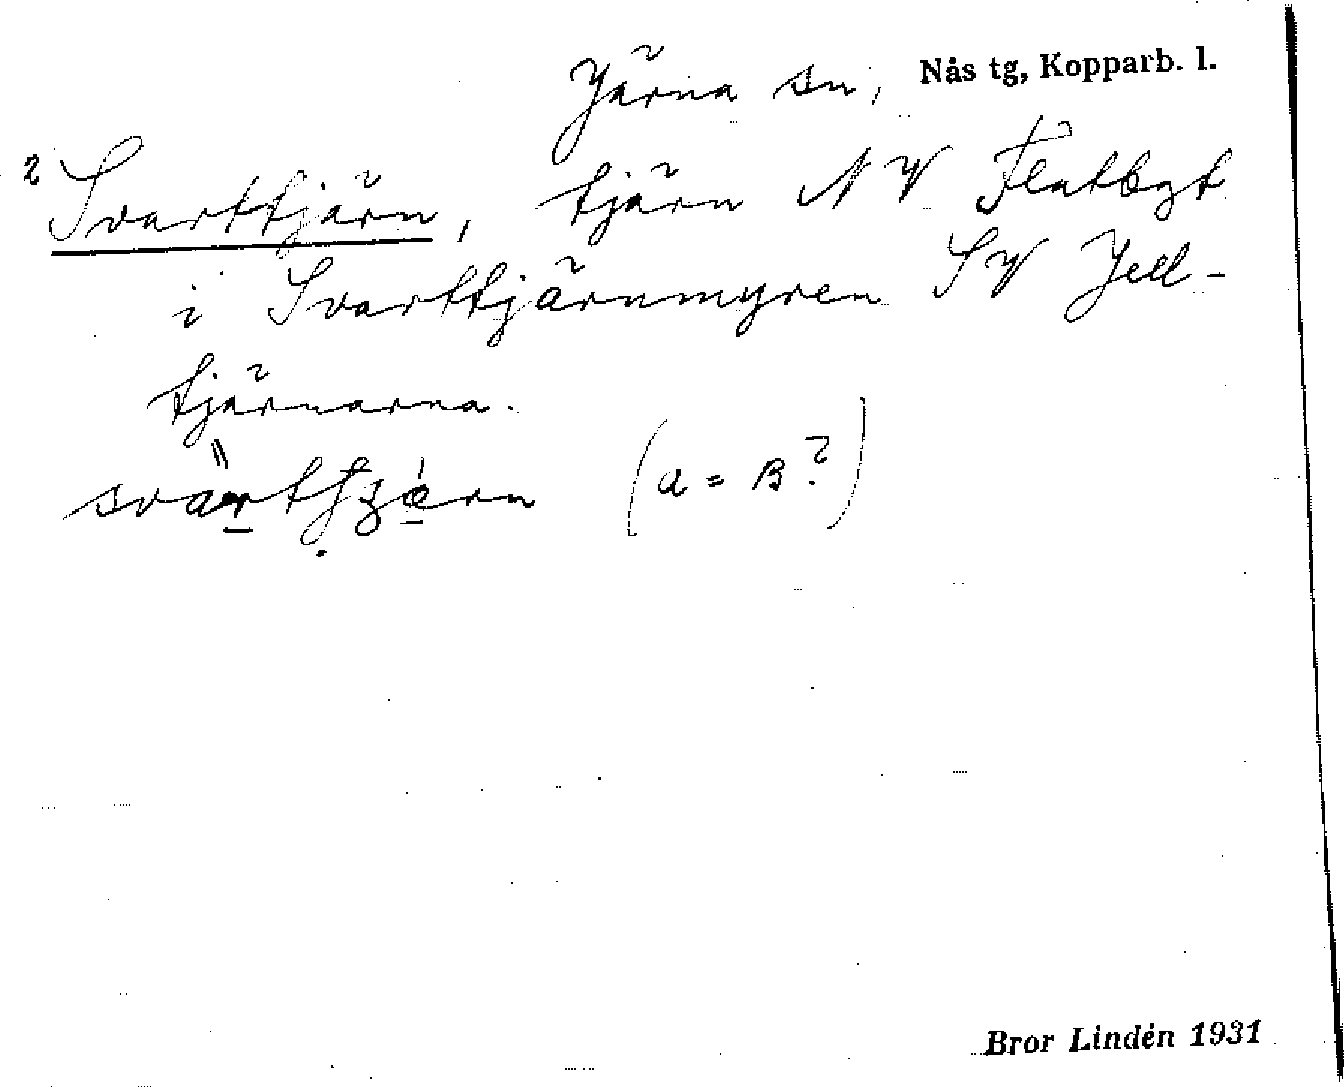 Järna sn, Nås tg, Kopparb. l.
2 Svarttjärn, tjärn NV Flatbygt
i Svarttjärnmyren SV Jell-
tjärnarna.
(a = B?)
Bror Lindén 1931